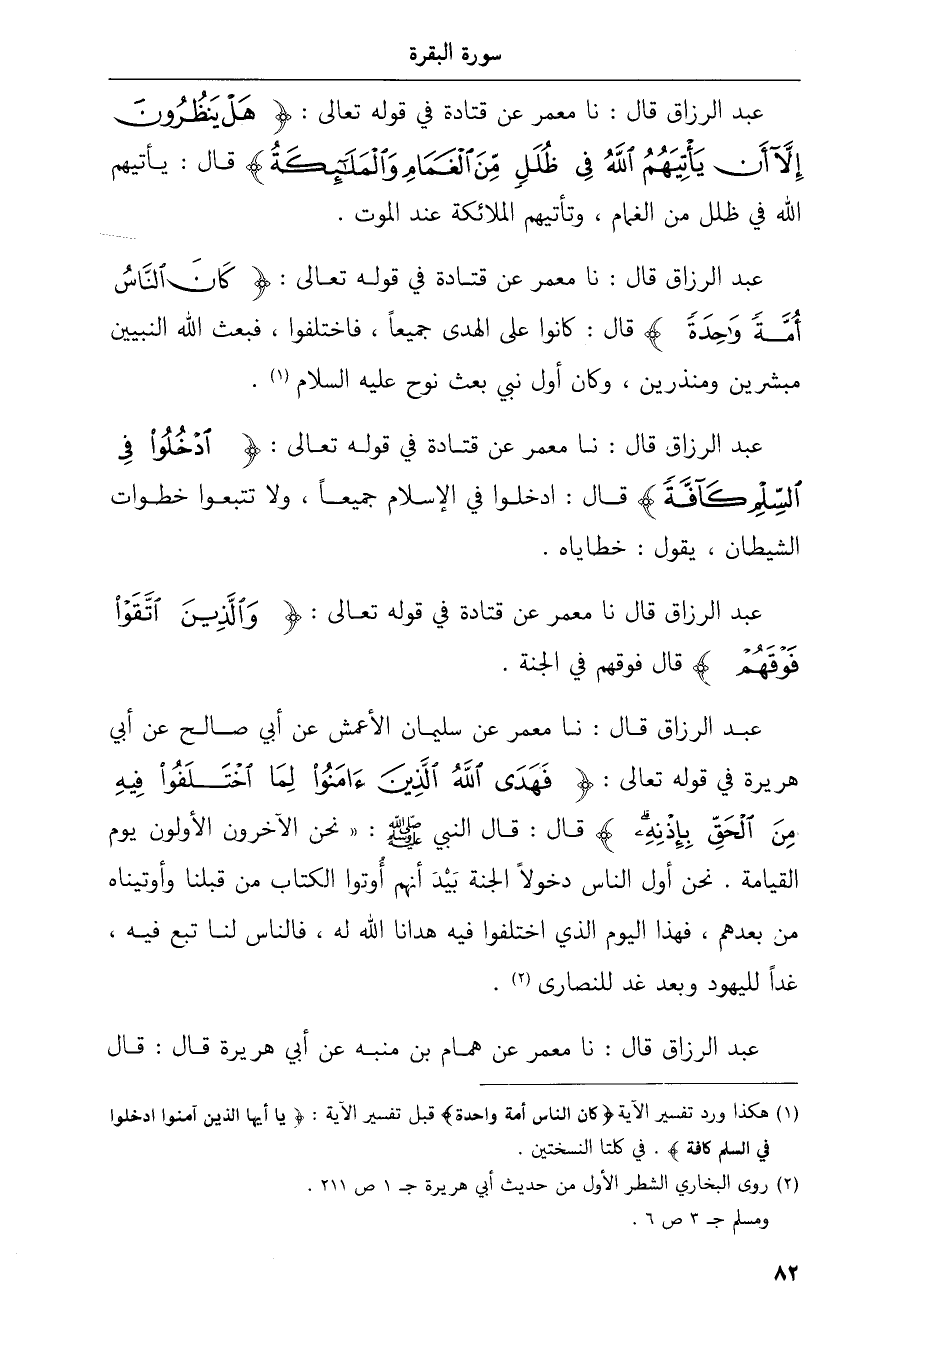 سورة البقرة
عبد الرزاق قال : نا معمر عن قتادة في قوله تعالى : ﴿ هَلْ يَنظُرُونَ
إِلَّآ أَن يَأْتِيَهُمُ ٱللَّهُ فِي ظُلَلٍ مِّنَ ٱلْغَمَامِ وَٱلْمَلَـٰٓئِكَةُ ﴾ قال : يأتيهم
الله في ظلل من الغمام ، وتأتيهم الملائكة عند الموت .
عبد الرزاق قال : نا معمر عن قتادة في قوله تعالى : ﴿ كَانَ ٱلنَّاسُ
أُمَّةً وَٰحِدَةً ﴾ قال : كانوا على الهدى جميعاً ، فاختلفوا ، فبعث الله النبيين
مبشرين ومنذرين ، وكان أول نبي بعث نوح عليه السلام (١) .
عبد الرزاق قال : نا معمر عن قتادة في قوله تعالى : ﴿ ٱدْخُلُوا۟ فِي
ٱلسِّلْمِ كَآفَّةً ﴾ قال : ادخلوا في الإسلام جميعاً ، ولا تتبعوا خطوات
الشيطان ، يقول : خطاياه .
عبد الرزاق قال نا معمر عن قتادة في قوله تعالى : ﴿ وَٱلَّذِينَ ٱتَّقَوْا۟
فَوْقَهُمْ ﴾ قال فوقهم في الجنة .
عبد الرزاق قال : نا معمر عن سليمان الأعمش عن أبي صالح عن أبي
هريرة في قوله تعالى : ﴿ فَهَدَى ٱللَّهُ ٱلَّذِينَ ءَامَنُوا۟ لِمَا ٱخْتَلَفُوا۟ فِيهِ
مِنَ ٱلْحَقِّ بِإِذْنِهِۦ ﴾ قال : قال النبي ﷺ : « نحن الآخرون الأولون يوم
القيامة . نحن أول الناس دخولاً الجنة بَيْدَ أنهم أُوتوا الكتاب من قبلنا وأوتيناه
من بعدهم ، فهذا اليوم الذي اختلفوا فيه هدانا الله له ، فالناس لنا تبع فيه ،
غداً لليهود وبعد غد للنصارى (٢) .
عبد الرزاق قال : نا معمر عن همام بن منبه عن أبي هريرة قال : قال
(١) هكذا ورد تفسير الآية ﴿كان الناس أمة واحدة﴾ قبل تفسير الآية : ﴿ يا أيها الذين آمنوا ادخلوا
في السلم كافة ﴾ . في كلتا النسختين .
(٢) روى البخاري الشطر الأول من حديث أبي هريرة جـ ١ ص ٢١١ .
ومسلم جـ ٣ ص ٦ .
٨٢